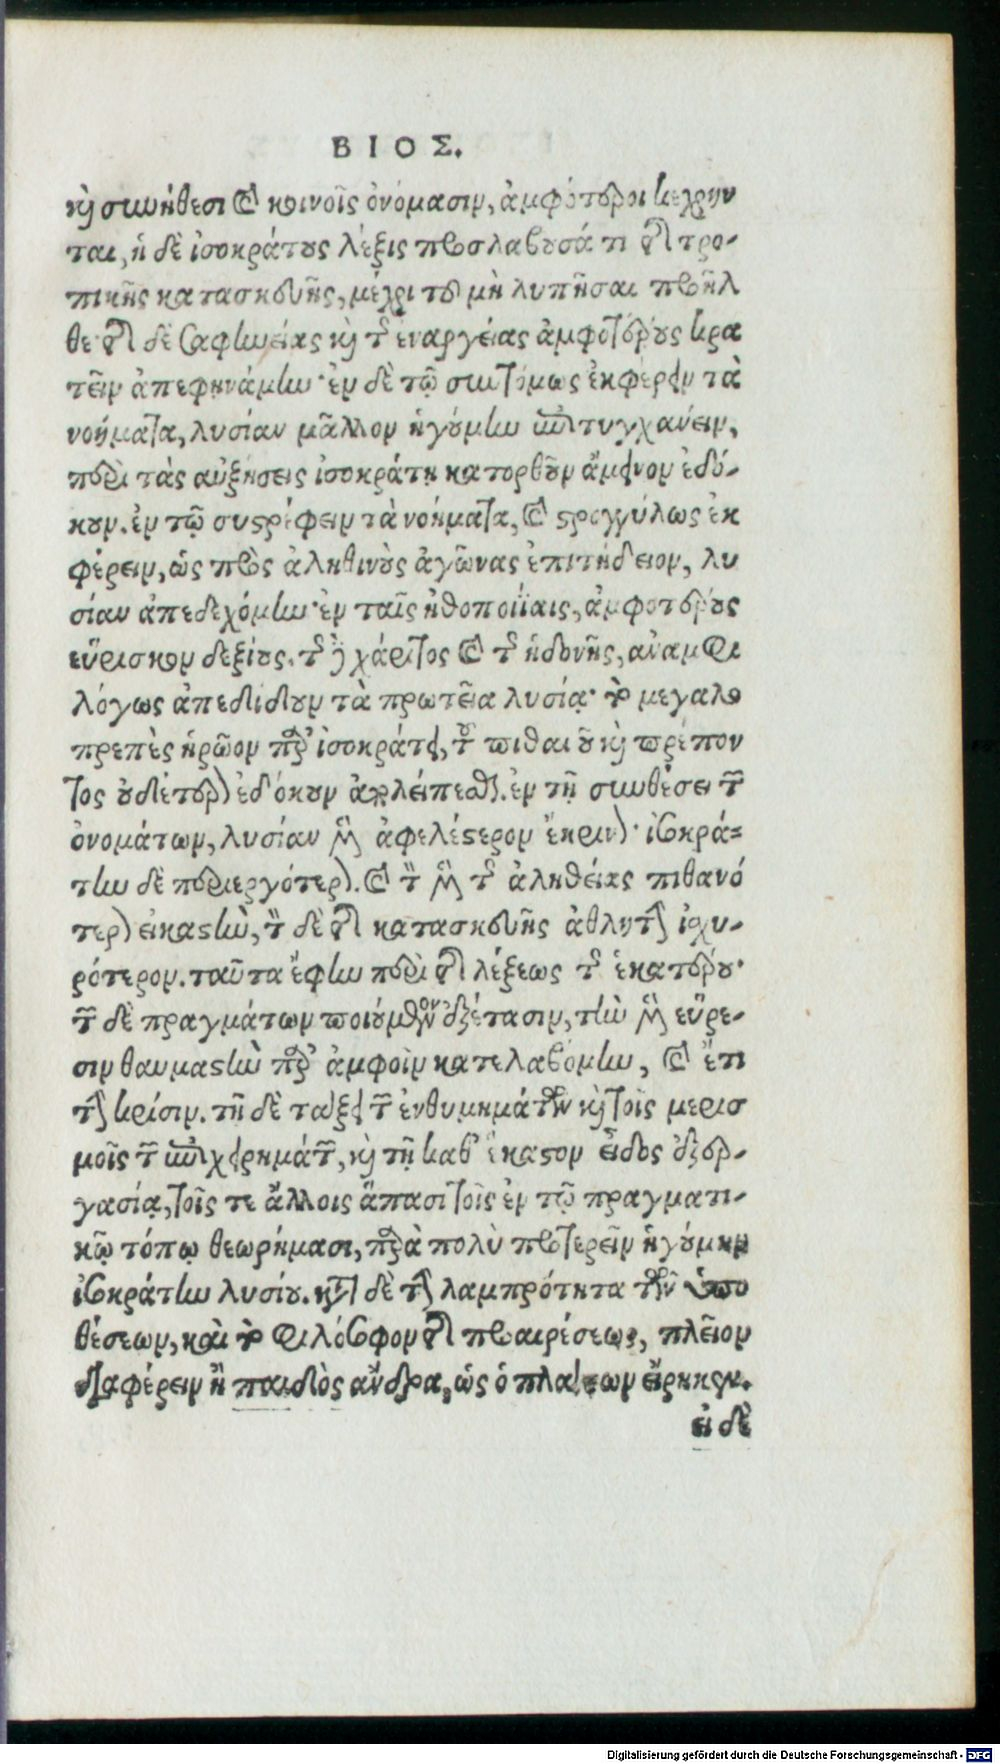 ΒΙΟΣ.
καὶ συνήθεσι καὶ κοινοῖς ὀνόμασιν, ἀμφότεροι κέχρην
ται, ἡ δὲ ἰσοκράτους λέξις προσλαβοῦσά τι τῆς τρο-
πικῆς κατασκευῆς, μέχρι τοῦ μὴ λυπῆσαι προῆλ
θε· τῆς δὲ σαφηνείας καὶ τῆς ἐναργείας ἀμφοτέρους κρα
τεῖν ἀπεφηνάμην· ἐν δὲ τῷ συντόμως ἐκφέρειν τὰ
νοήματα, λυσίαν μᾶλλον ἡγούμην ἐπιτυγχάνειν,
περὶ τὰς αὐξήσεις ἰσοκράτη κατορθοῦν ἄμεινον ἐδό-
κουν. ἐν τῷ συστρέφειν τὰ νοήματα, καὶ στρογγύλως ἐκ
φέρειν, ὡς πρὸς ἀληθινοὺς ἀγῶνας ἐπιτήδειον, λυ
σίαν ἀπεδεχόμην· ἐν ταῖς ἠθοποιΐαις, ἀμφοτέρους
εὕρισκον δεξιούς. τῆς δὲ χάριτος καὶ τῆς ἡδονῆς, ἀναμφι
λόγως ἀπεδίδουν τὰ πρωτεῖα λυσίᾳ· τὸ μεγαλο
πρεπὲς ἡρῷον παρ' ἰσοκράτει, τοῦ πιθανοῦ καὶ πρέπον
τος οὐδέτερον ἐδόκουν ἀπολείπεσθαι. ἐν τῇ συνθέσει τῶν
ὀνομάτων, λυσίαν μὲν ἀφελέστερον ἔκρινον· ἰσοκρά-
την δὲ περιεργότερον. καὶ τὸν μὲν τῆς ἀληθείας πιθανό
τερον εἰκαστὴν, τὸν δὲ τῆς κατασκευῆς ἀθλητὴν ἰσχυ-
ρότερον. ταῦτα ἔφην περὶ τῆς λέξεως τῆς ἑκατέρου·
τῶν δὲ πραγμάτων ποιούμενος ἐξέτασιν, τὴν μὲν εὕρε-
σιν θαυμαστὴν παρ' ἀμφοῖν κατελαβόμην, καὶ ἔτι
τὴν κρίσιν. τῇ δὲ τάξει τῶν ἐνθυμημάτων καὶ τοῖς μερισ
μοῖς τῶν ἐπιχειρημάτων, καὶ τῇ καθ' ἕκαστον εἶδος ἐξερ-
γασίᾳ, τοῖς τε ἄλλοις ἅπασι τοῖς ἐν τῷ πραγματι-
κῷ τόπῳ θεωρήμασι, παρὰ πολὺ προτερεῖν ἡγούμην
ἰσοκράτην λυσίου. κατὰ δὲ τὴν λαμπρότητα τῶν ὑπο
θέσεων, καὶ τὸ φιλόσοφον τῆς προαιρέσεως, πλεῖον
διαφέρειν ἢ παιδὸς ἄνδρα, ὡς ὁ πλάτων εἴρηκεν.
εἰ δὲ
Digitalisierung gefördert durch die Deutsche Forschungsgemeinschaft - DFG